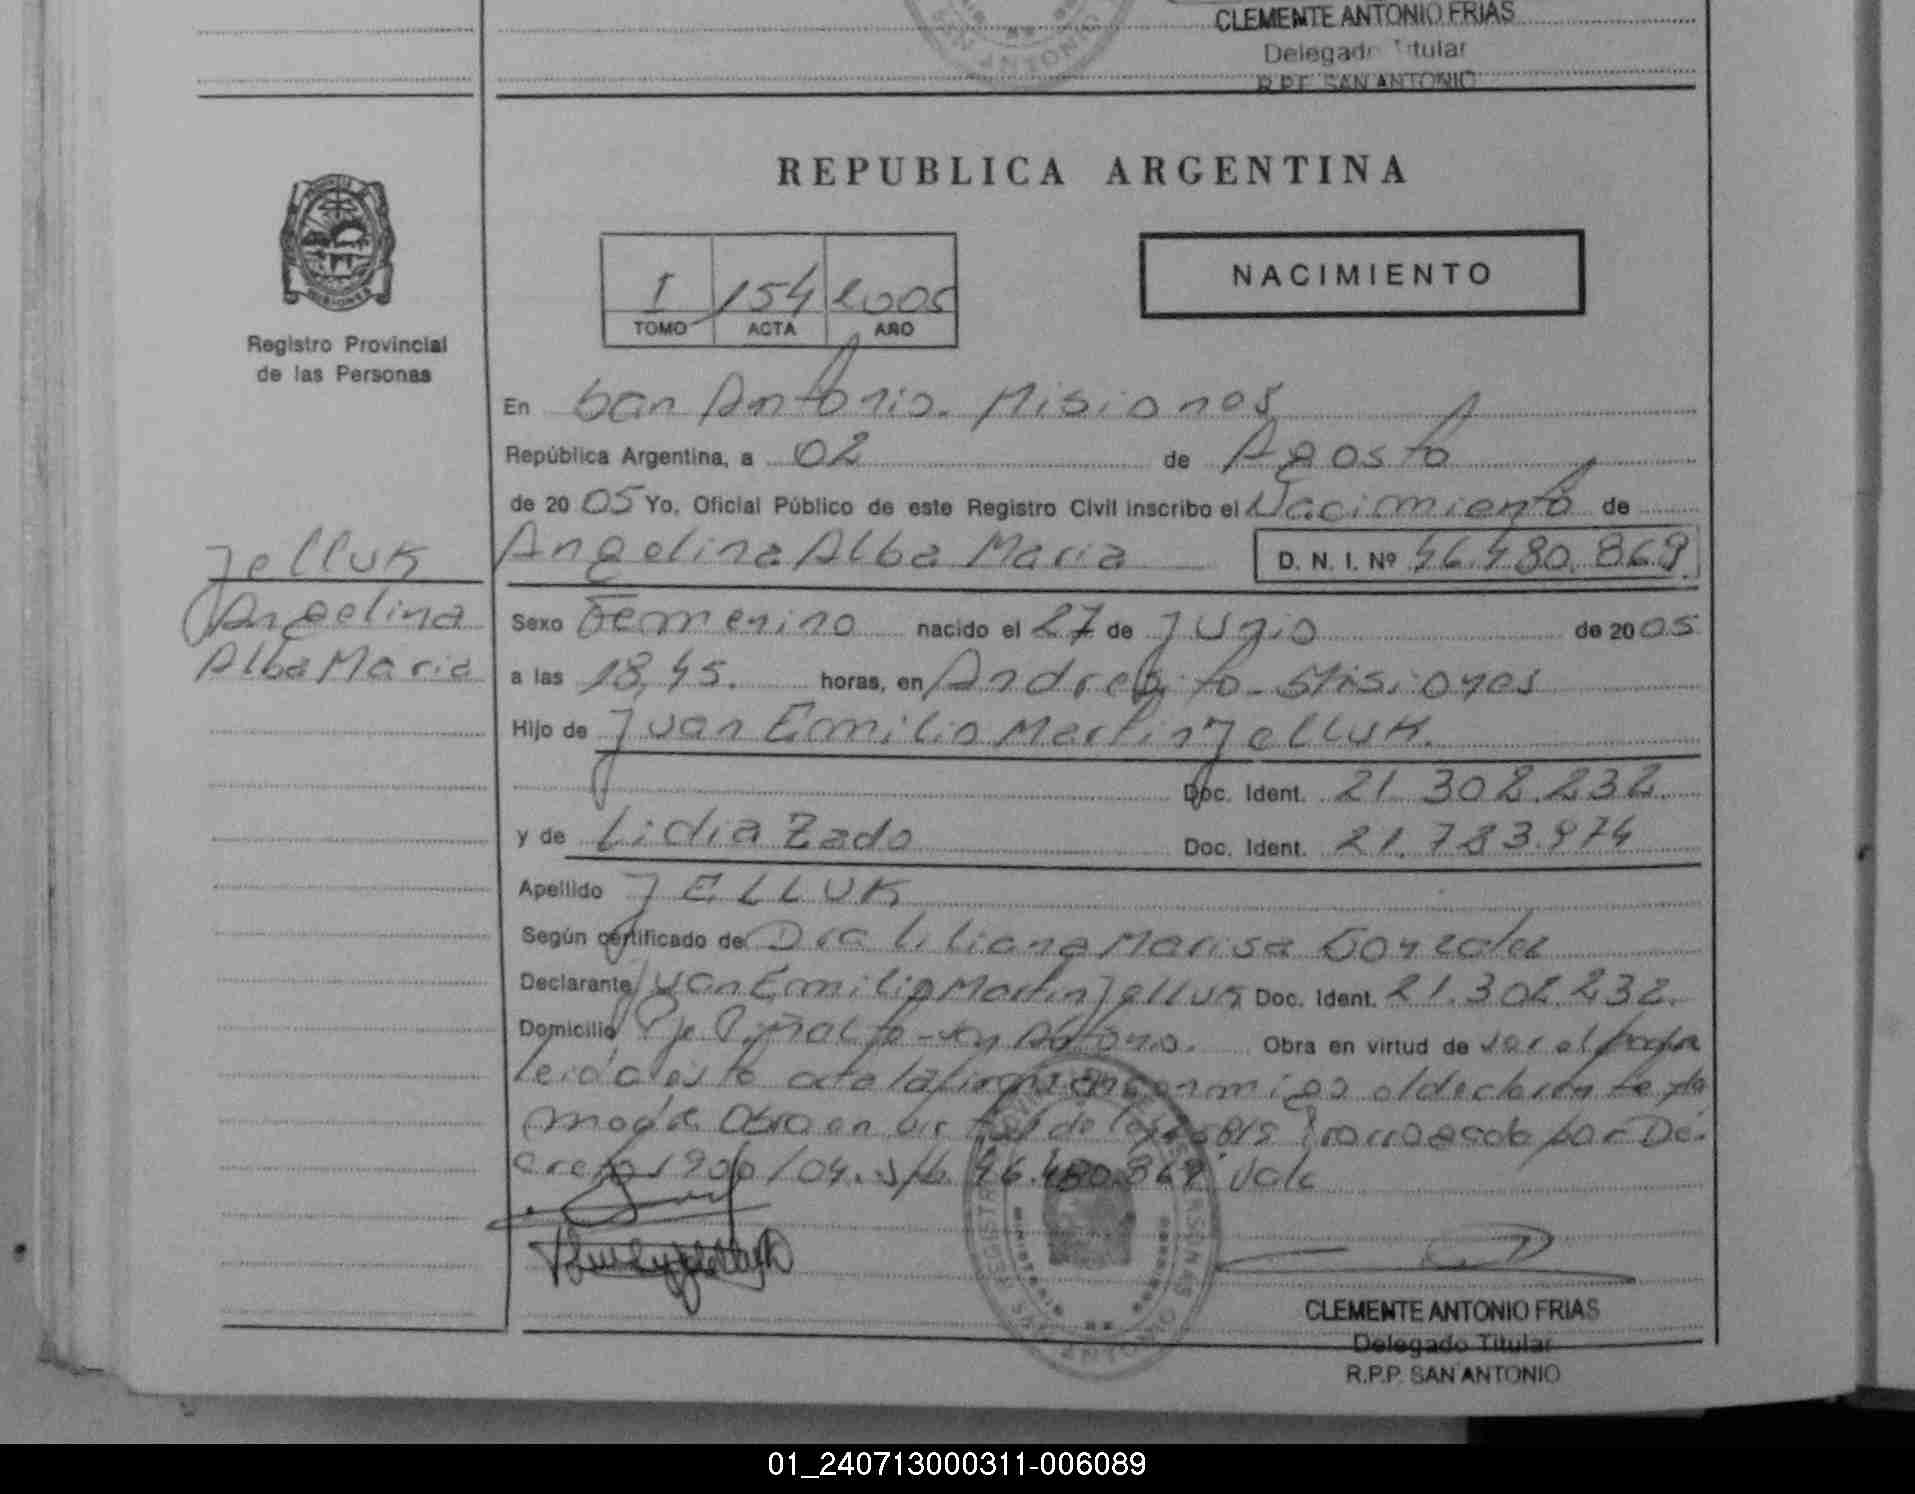 CLEMENTE ANTONIO FRIAS
Delegado Titular
R.P.P. SAN ANTONIO
REPUBLICA ARGENTINA
NACIMIENTO
I 154 2005
TOMO ACTA AÑO
Registro Provincial
de las Personas
En San Antonio. Misiones
República Argentina, a 02 de Agosto
de 2005 Yo. Oficial Público de este Registro Civil inscribo el Nacimiento de
Jelluk
Angelina Alba Maria D. N. I. Nº 46.480.869
Angelina
Sexo Femenino nacido el 27 de Junio de 2005
Alba Maria
a las 18,45. horas, en Andresito - Misiones
Hijo de Juan Emilio Martin Jelluk.
Doc. Ident. 21.302.232.
y de Lidia Zado Doc. Ident. 21.783.974
Apellido JELLUK
Según certificado de Dra Liliana Marisa Gonzalez
Declarante Juan Emilio Martin Jelluk Doc. Ident. 21.302.232.
Domicilio Pje Piñalito - San Antonio. Obra en virtud de ser el padre
leida esta acta la firman conmigo el declarante y la
Obra en virtud de por De-
creto 1900/04. S/b. 46.480.869. Vale
CLEMENTE ANTONIO FRIAS
Delegado Titular
R.P.P. SAN ANTONIO
01_240713000311-006089